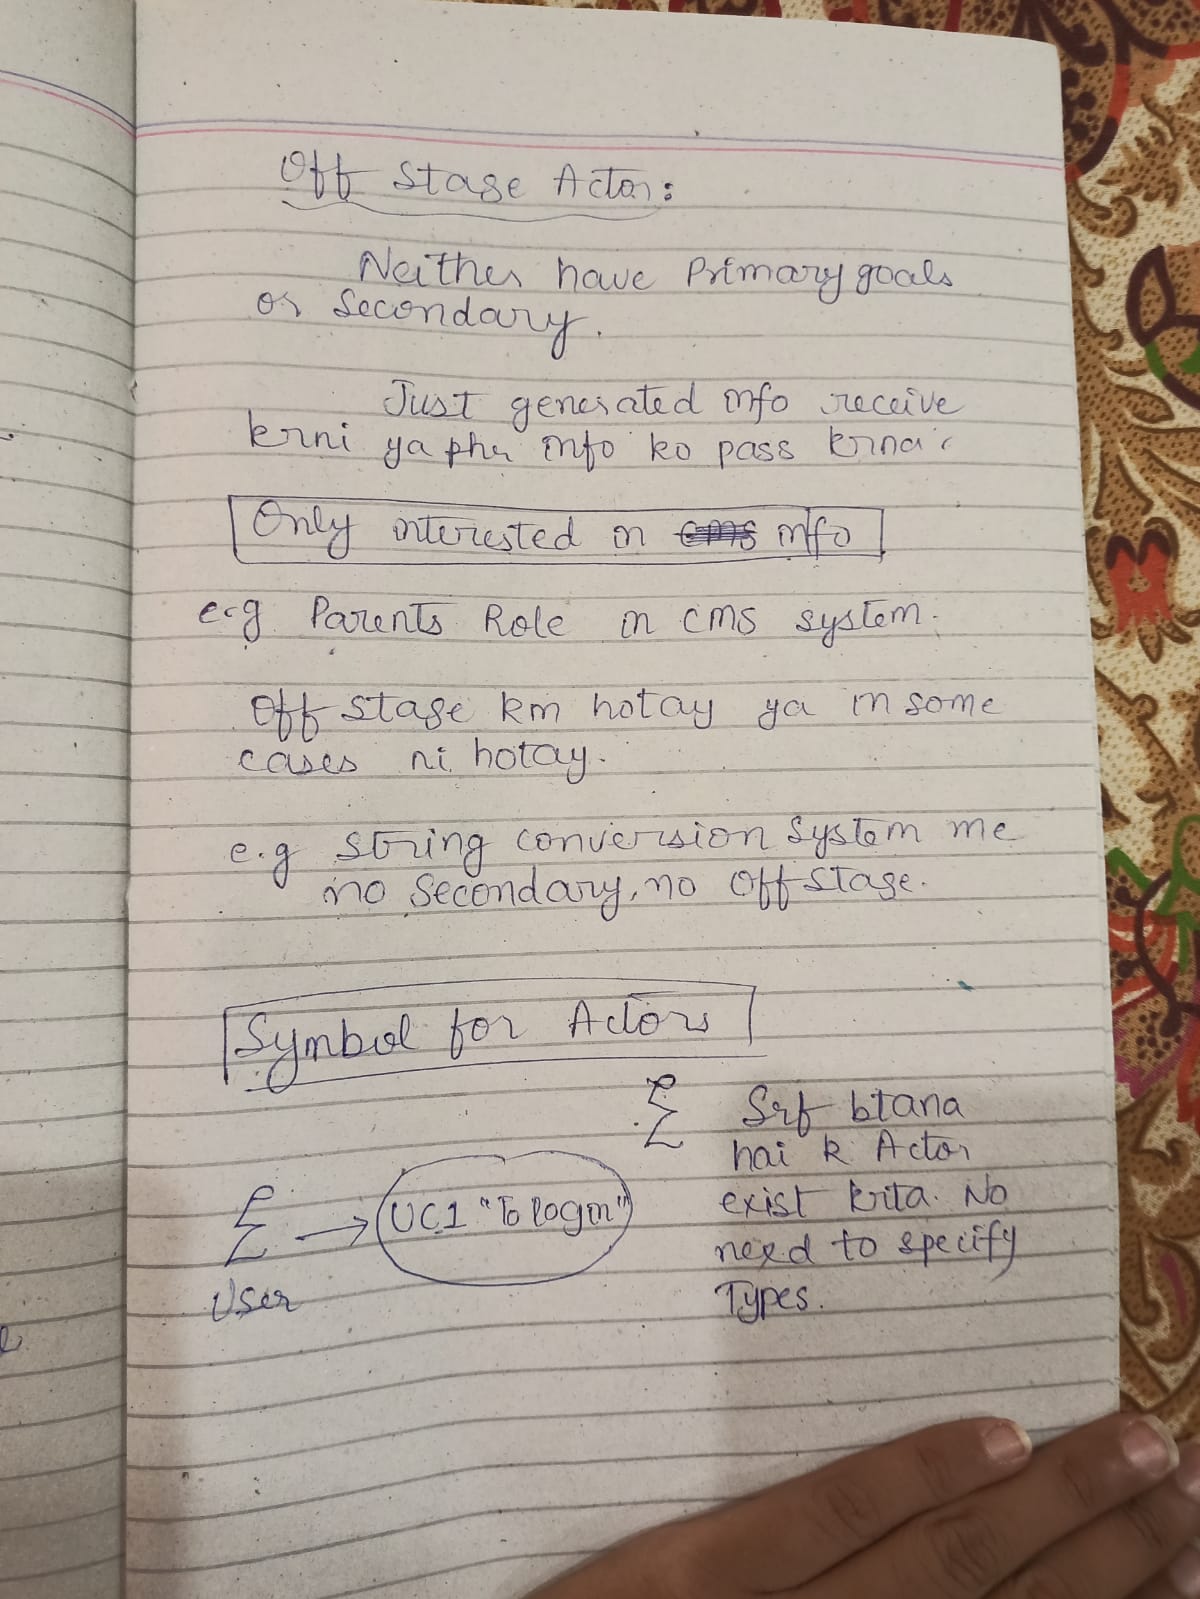 Off Stage Actor:
Neither have Primary goals
or Secondary.
Just generated info receive
krni ya phr info ko pass krna.
Only interested in info
e.g Parents Role in CMS system.
Off stage km hotay ya in some
cases ni hotay.
e.g string conversion System me
no Secondary, no Off Stage.
Symbol for Actors
Srf btana
hai k Actor
exist krta. No
need to specify
Types.
UC1 "To login"
User